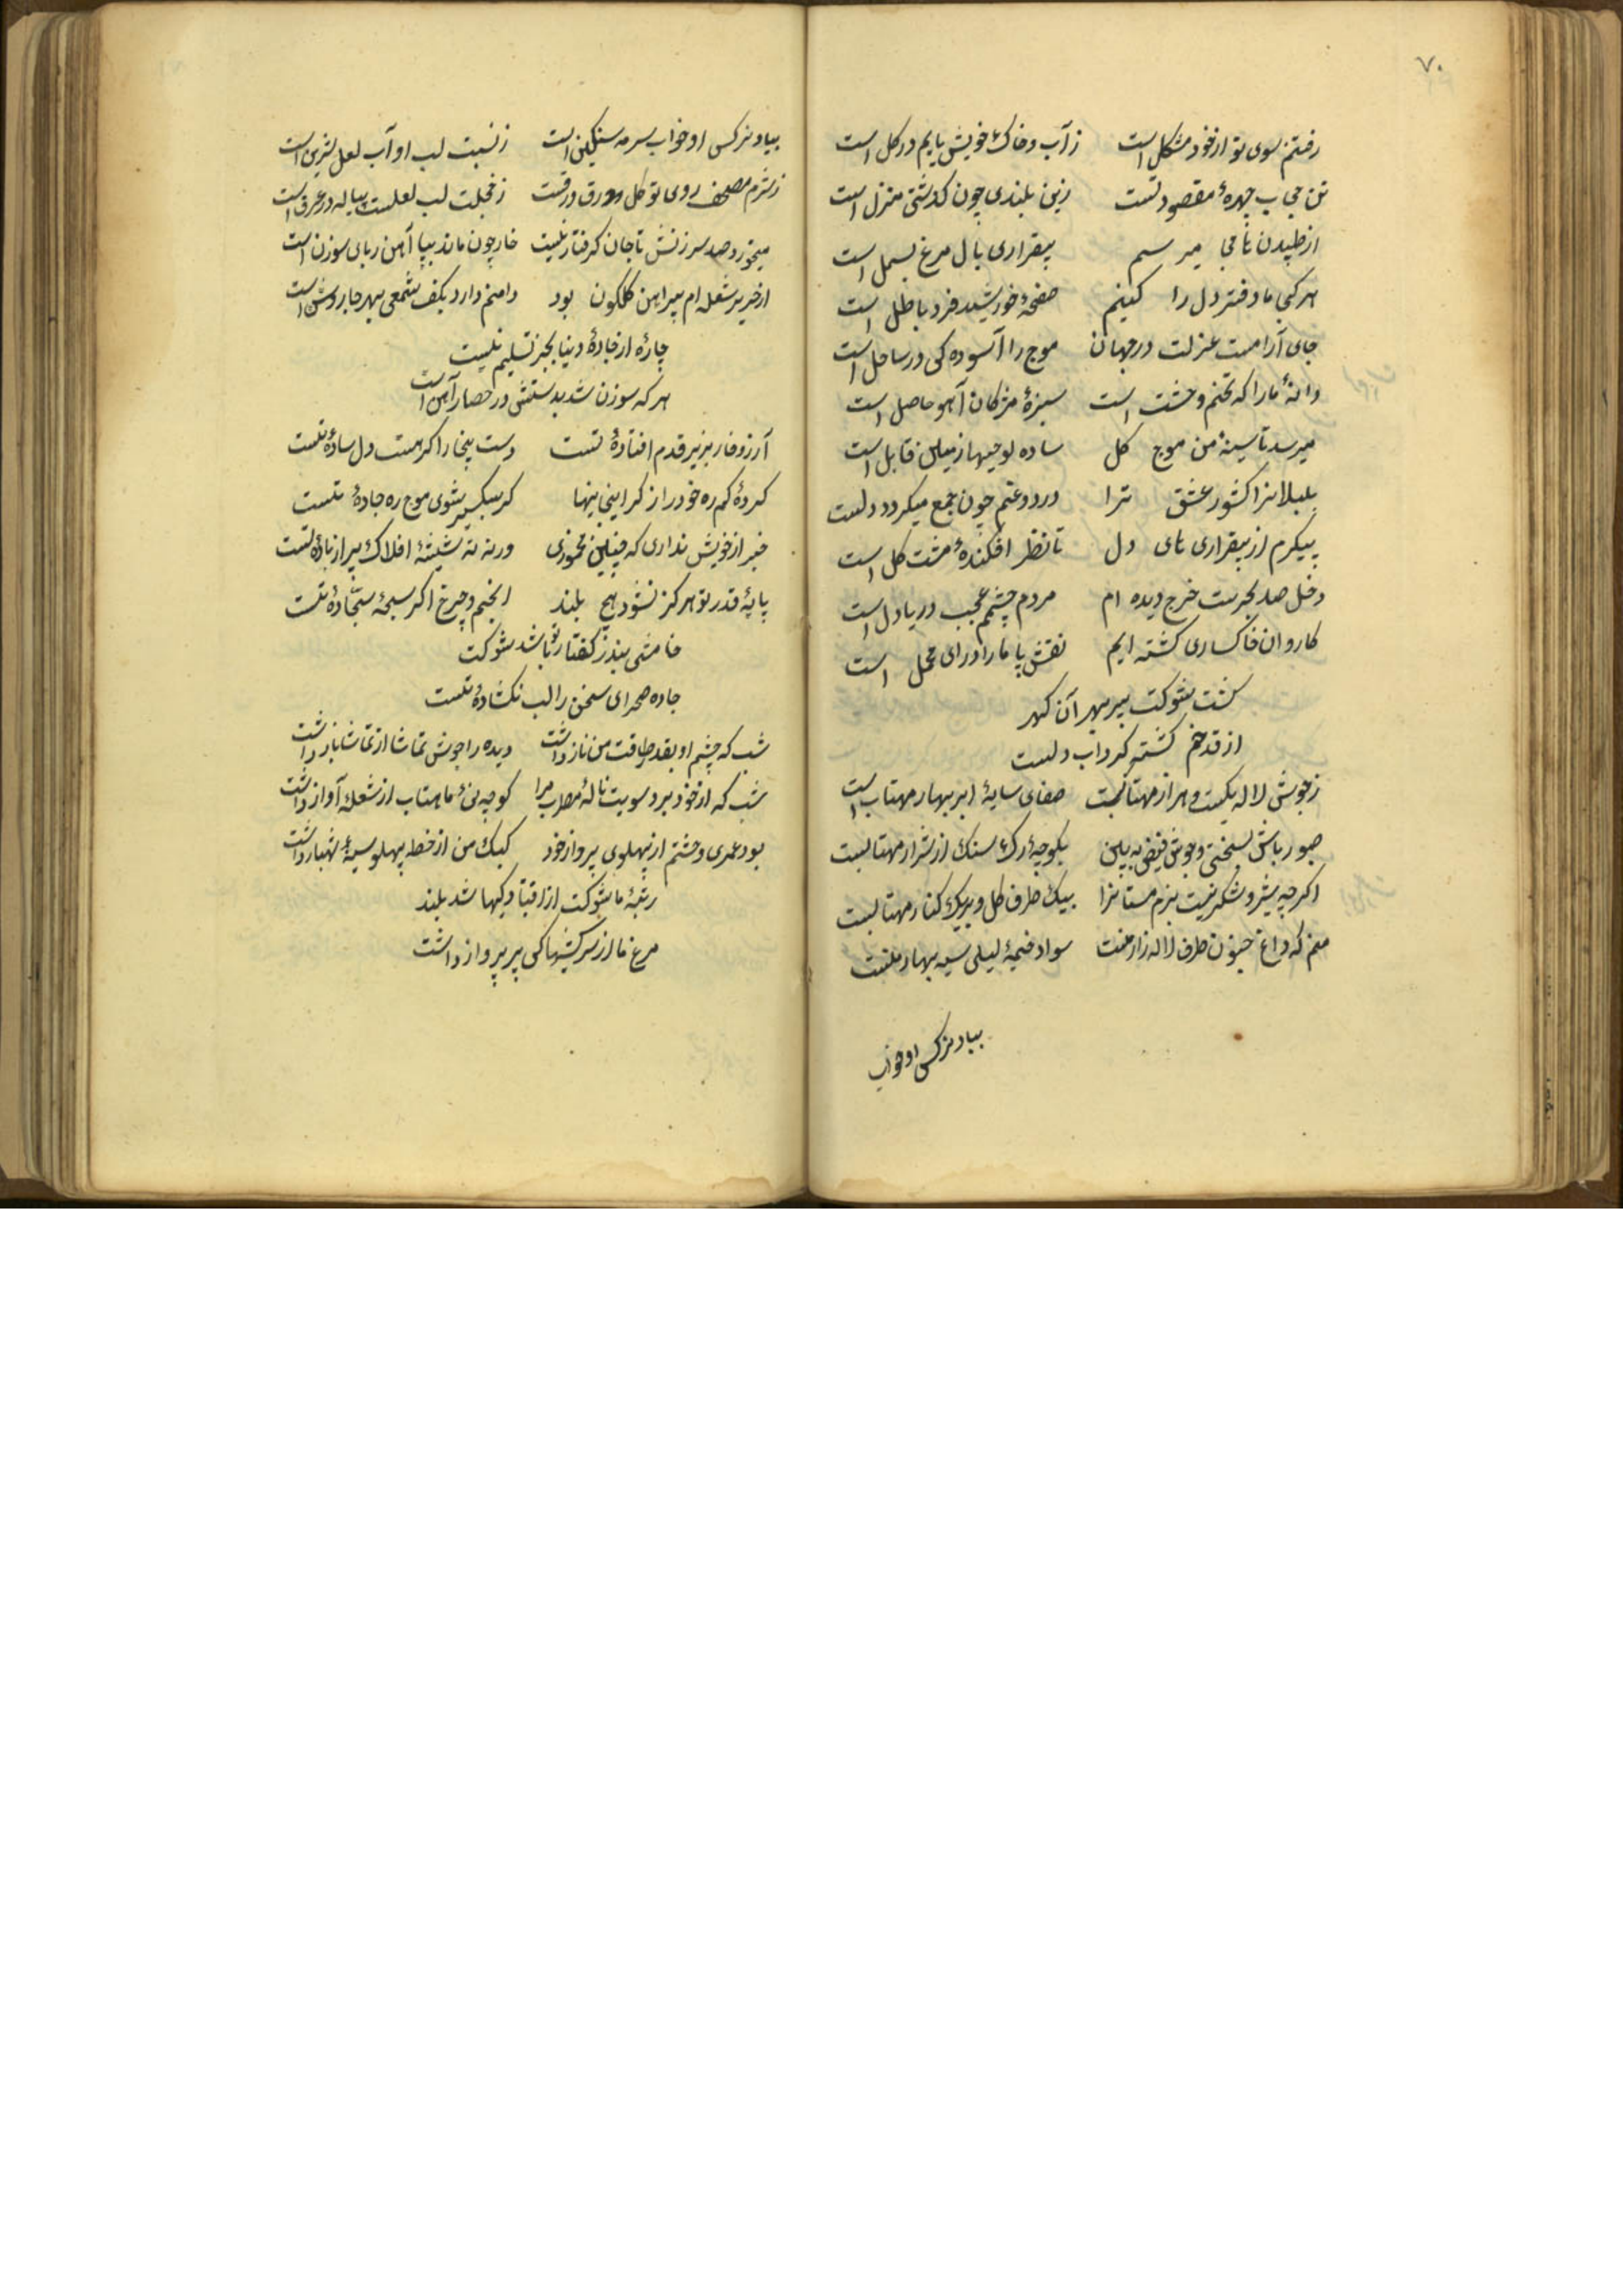 ۷۰
رفتنم سوی تو از خود مشکل است زآب و خاک خویش پایم در گل است
تن حجاب چهرهٔ مقصود تست زین بلندی چون گذشتی منزل است
از طپیدن تا می سم بیقراری بال مرغ بسمل است
هر کجا ما دفتر دل را کنیم صفحهٔ خورشید فرد باطل است
جای آرامست عزلت در جهان موج را آسوده کی در ساحل است
دانهٔ ما را که تخم وحشت است سبزهٔ مژکان آهو حاصل است
میرسد تا سینهٔ من موج کل ساده لوحیها از قابل است
کشور عشق ترا درد و غم چون جمع میکردد دلست
پیکرم از بیقراری های دل تا نظر افکندهٔ مشت کل است
دخل صد بحرست خرج دیده ام مردم چشمم عجب دریادل است
کاروان خاکساری کشته ایم نقش پا ما را درای محمل است
کشت شوکت بیر بهر آن کهر
از قد خم کشته کرداب دلست
زجوش لاله مهتابست صفای سایهٔ ابر بهار مهتاب است
صبور باش بسختی و جوش فیض به بین بکوچهٔ رک سنک از شرار مهتابست
اکرچه شیر و شکر نیست بزم مستانرا بیک طرف کل و بریک کنار مهتابست
منم که داغ جنون طرف لاله زار منست سواد خیمهٔ لیلی سیه بهار منست
بیاد نرکس او خواب
بیاد نرکس او خواب سرمه سنکین است ز نسبت لب او آب لعل شیرین است
زشرم مصحف روی تو کل ورق ورقست زخجلت لب لعلست پیاله در عرق است
میخورد صد سرزنش تا جان کرفتار تنست خار چون ماند بپا آهن ربای سوزن است
از حریر شعله ام پیراهن کلکون بود دامنم دارد بکف شمعی بهر جا روشن است
چاره از دنیا بجز تسلیم نیست
هر که سوزن شد بدستش در حصار آهن است
آرزو خار بزیر قدم افتادهٔ تست دست را کر هست دل سادهٔ تست
کردهٔ کم ره خود را ز کرانی کر سبک سیر شوی موج ره جادهٔ تست
خبر از خویش نداری که چنین مخموری ورنه نه شیشهٔ افلاک پر از بادهٔ تست
پایهٔ قدر تو هرکز نشود هیچ بلند انجم و چرخ اکر سبحه و سجادهٔ تست
خامشی بند ز کفتار تو باشد شوکت
جاده صحرای سخن را لب نکشادهٔ تست
شب که چشم او بقدر طاقت من ناز داشت دیده را جوش تماشا از تماشا باز داشت
شب که از خود برد سویت نالهٔ مطرب مرا کوچهٔ نی ماهتاب از شعلهٔ آواز داشت
بود عمری وحشتم از پهلوی پرواز خود کبک من از خط پهلو سینهٔ شهباز داشت
رتبهٔ ما شوکت از افتادکیها شد بلند
مرغ ما از سرکشیها کی پر پرواز داشت